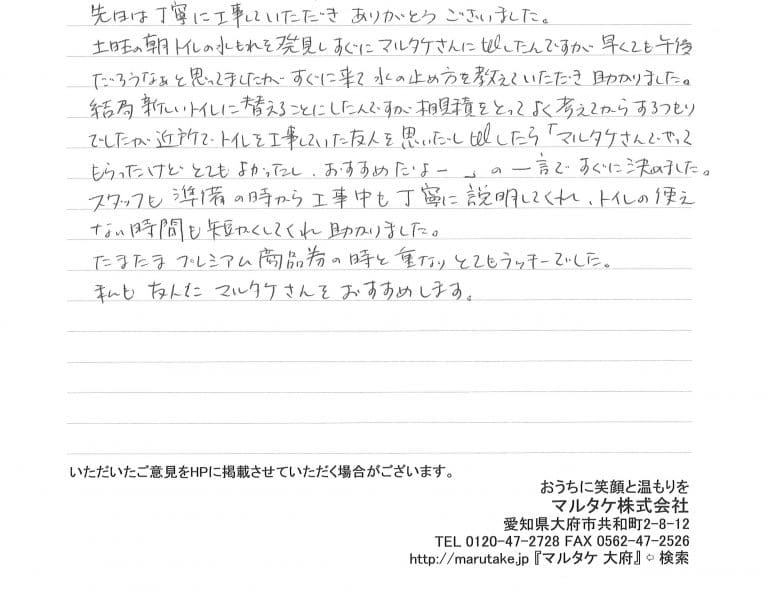 先日は丁寧に工事していただき ありがとう ございました。
土旺の朝トイレの水もれを発見しすぐにマルタケさんにtelしたんですが 早くても午後
だろうなぁと思ってましたがすぐに来て 水の止め方を教えていただき 助かりました。
結局 新しいトイレに替えることにしたんですが相見積をとってよく考えてからするつもり
でしたが近所でトイレを工事していた友人を思いだしtelしたら「マルタケさんでやって
もらったけど とてもよかったし、おすすめだよー」の一言ですぐに決めました。
スタッフも 準備の時から工事中も丁寧に説明してくれ、トイレの使え
ない時間も短かくしてくれ 助かりました。
たまたま プレミアム商品券の時と重なり とてもラッキーでした。
私も 友人に マルタケさんを おすすめします。
いただいたご意見をHPに掲載させていただく場合がございます。
おうちに笑顔と温もりを
マルタケ株式会社
愛知県大府市共和町2-8-12
TEL 0120-47-2728 FAX 0562-47-2526
http://marutake.jp 『マルタケ 大府』⇦ 検索